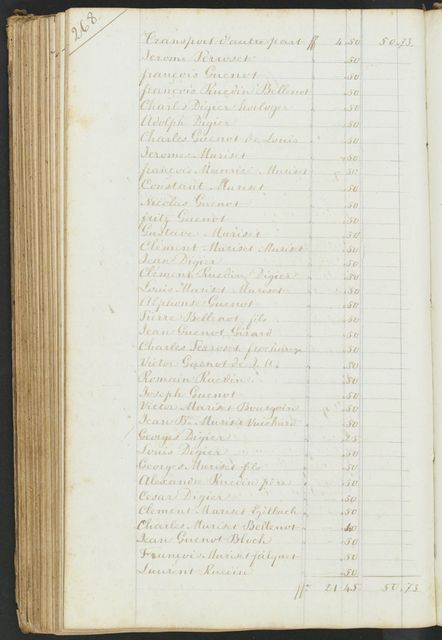 268.
Transport d'autre part ff 4.50 50.73
Jerome Perroset .50
françois Guenot .50
françois Ruedin Bellenot .50
Charles Digier horloger .50
Adolph Digier .50
Charles Guenot de Louis .50
Jerome Muriset .50
françois Muriset .50
Constant Muriset .50
Nicolas Guenot .50
fritz Guenot .50
Gustave Muriset .50
Clément Muriset Muriset .50
Jean Digier .50
Clément Ruedin Digier .50
Louis Muriset Muriset .50
Alphonse Guenot .50
Pierre Bellenot fils .50
Jean Guenot Girard .50
Charles Perroset .50
Victor Guenot de .50
Romain Ruedin .50
Joseph Guenot .50
Victor Muriset Bourgoin .50
Jean Bte Muriset Vuichard .50
Georges Digier .25
Louis Digier .50
Georges Muriset fils .50
Alexandre Ruedin père .50
Cesar Digier .50
Clement Muriset .50
Charles Muriset Bellenot
Jean Guenot Bloch .50
François Muriset .50
Laurent Ruedin .50
ff 21 45 50.73